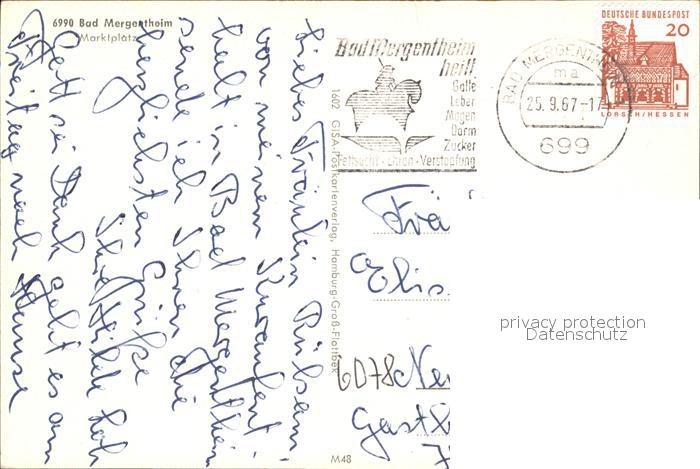 6990 Bad Mergentheim
Marktplatz
Liebes Fräulein Rübsam!
von meinem Kuraufent-
halt in Bad Mergentheim
sende ich Ihnen die
herzlichsten Grüße
Ihre Hilde
Gott sei Dank geht es am
Freitag nach Hause
1602 GISA-Postkartenverlag, Hamburg-Groß-Flottbek
M48
Bad Mergentheim
heilt
Galle
Leber
Magen
Darm
Zucker
Fettsucht · chron. Verstopfung
BAD MERGENTHEIM
ma
25.9.67-17
699
DEUTSCHE BUNDESPOST
20
LORSCH/HESSEN
Frä
Elis
6078 Ne
Gastl
privacy protection
Datenschutz